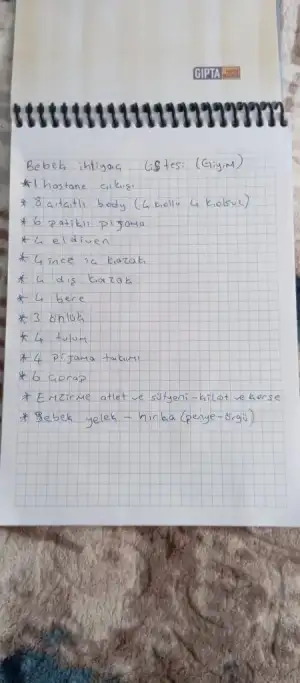 GIPTA
Bebek ihtiyaç listesi (Giyim)
* 1 hastane çıkışı
* 8 çıtçıtlı body (4 kollu 4 kolsuz)
* 6 patikli pijama
* 4 eldiven
* 4 ince iç kazak
* 4 dış kazak
* 4 bere
* 3 önlük
* 4 tulum
* 4 pijama takımı
* 6 çorap
* Emzirme atlet ve sütyeni - külot ve korse
* Bebek yelek - hırka (penye-örgü)